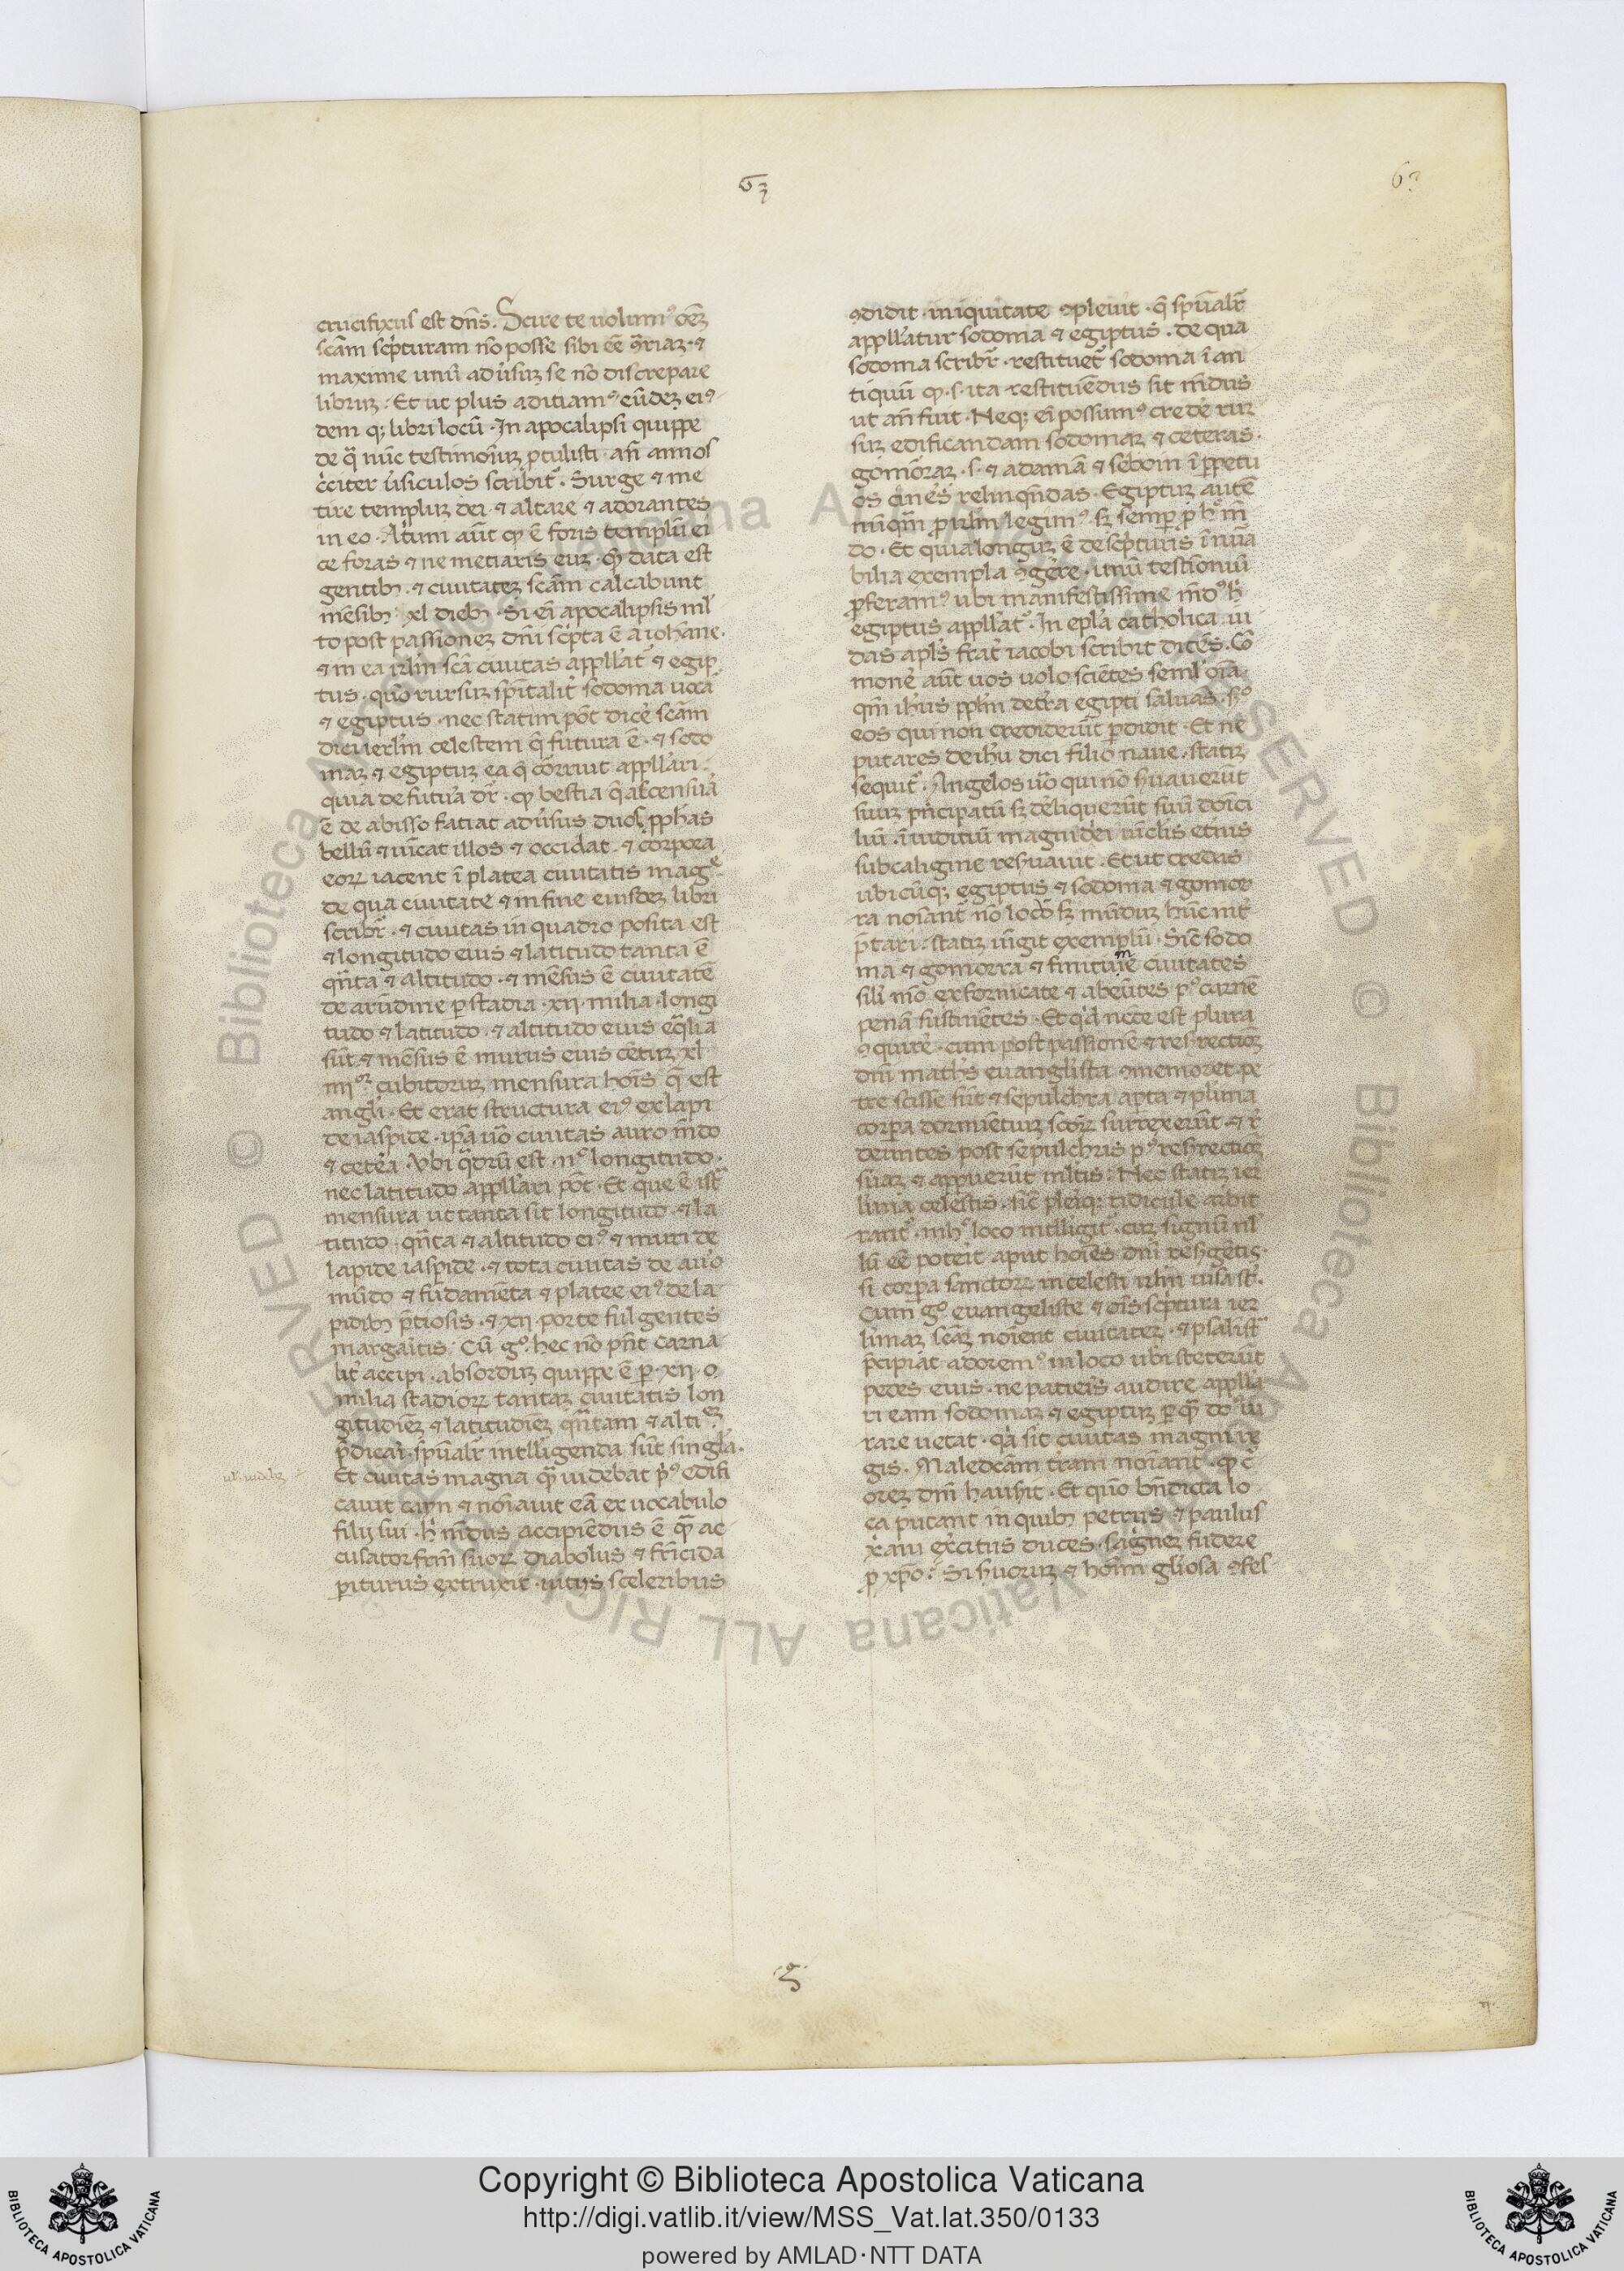 63
63
crucifixus est dn̄s. Scire te uolum⁹ oēꝫ
sc̄am sc̄pturam nō posse sibi eē ꝯ̄riaꝫ · ⁊
maxime unū aduʼsuꝫ se nō discrepare
libruꝫ. Et ut plus aditiam⁹ eūdeꝫ ei⁹
dem qꝫ libri locū · In apocalipsi quippe
de q̄ nūc testimoīuꝫ ꝓtulisti · an̄ annos
uʼsiculos scribit᷑ · Surge ⁊ me
tire templuꝫ dei · ⁊ altare ⁊ adorantes
in eo · Atrium aūt qꝫ ē foris templū ei
ce foras ⁊ ne metiaris euꝫ · data est
gentibꝫ · ⁊ ciuitateꝫ sc̄am calcabunt
mēsibꝫ xl diebꝫ · Si eī apocalipsis ml̓
to post passioneꝫ dn̄i sc̄pta ē a iohāne ·
⁊ in ea irl̄m sc̄a ciuitas appll̓at᷑ ⁊ egip
tus · quō rursuꝫ sp̄italit̓ sodoma uocā
⁊ egiptus · nec statim pōt dicē sc̄am
dieuerl̄m celestem q̄ futura ē · ⁊ sodo
maꝫ ⁊ egiptuꝫ ea q̄ corruit appll̓ari ·
quia de futura dr̄ · bestia q̄ ascensura
ē de abisso faciat aduʼsus duos ꝓphās
bellū ⁊ uīcat illos ⁊ occidat · ⁊ corpora
eoꝝ iacent ī platea ciuitatis magᵉ ·
de qua ciuitate ⁊ in fine eiusdeꝫ libri
scribit᷑ · ⁊ ciuitas in quadro posita est
⁊ longitudo eius ⁊ latitudo tanta ē
qn̄ta ⁊ altitudo · ⁊ mēsus ē ciuitatē
de arūdine ꝑ stadia · xij · milia · longi
tudo ⁊ latitudo · ⁊ altitudo eius eq̄lia
sūt · ⁊ mēsus ē murus eius cētuꝫ xl
iiijᵒʳ cubitoruꝫ mensura hoīs q̄ est
angl̓i · Et erat structura ei⁹ ex lapi
de iaspide · ip̄a uō ciuitas auro mūdo
⁊ cetera · Vbi q̄drū est · n͛ longitudo ·
nec latitudo appll̓ari pōt · Et que ē ist̓
mensura ut tanta sit longitudo · ⁊ la
titudo · qn̄ta ⁊ altitudo ei⁹ ⁊ muri de
lapide iaspide · ⁊ tota ciuitas de auro
mūdo ⁊ fūdamēta ⁊ platee ei⁹ de la
pidibꝫ p̄tiosis · ⁊ xij · porte fulgentes
margaritis · Cū gͦ · hec nō pn̄t carna
lit̓ accipi · absorduꝫ quippe ē ꝑ · xij · o
milia stadioꝝ tantaꝫ ciuitatis lon
gitudīeꝫ ⁊ latitudīeꝫ qn̄tam ⁊ altiᵉꝫ
p̄dicari · sp̄ualit̓ intll̓igenda sūt singl̓a ·
Et ciuitas magna quā uidebat p͛us edifi
cauit cayn ⁊ noīauit eā ex uocabulo
filij sui · h̓ mūdus accipiēdus ē quē ac
cusator fr̄m suoꝝ diabolus ⁊ fr̄icida
ꝑiturus extruxit · uitijs sceleribus
ꝯdidit · iniquitate ꝯpleuit · q̄ sp̄ualit̓
appll̓atur sodoma ⁊ egiptus · de qua
sodoma scribit᷑ · restituet᷑ sodoma ī an
tiquū · s · ita restituēdus sit mūdus
ut an̄ fuit · Neqꝫ eī possum⁹ credē rur
suꝫ edificandam sodomaꝫ ⁊ ceteras ·
gomoraꝫ · s · ⁊ adamā ⁊ seboin ī ꝑpetu
os cīneʼs relinquēdas · Egiptuꝫ autē
nūquam ꝓ irl̄m legim⁹ · sꝫ semꝑ ꝓ hͦ mū
do · Et quia longuꝫ ē de sc̄pturis īnūa
bilia exempla ꝯgere · unū testioniū
ꝓferam⁹ ubi manifestissime mūdͦ h̓
egiptus appll̓at᷑ · In epl̓a catholica iu
das apl̓s frat̓ iacobi scribit dicēs · Cō
monē aūt uos uolo sciētes seml̓ oīa ·
qm̄ ih̄us ppl̓m de tr̄a egipti saluās ·
eos qui non crediderūt ꝑdidit · Et ne
putares de ih̄u dici filio naue · statiꝫ
sequit᷑ · Angelos uō qui nō ẜuauerūt
suuꝫ p̄ncipatū sꝫ dēliquerūt suū domici
liū · ī iuditiū magni dei uīclis etnis
sub caligine reẜuauit · Et ut credas
ubicūqꝫ egiptus ⁊ sodoma ⁊ gomor
ra noīant᷑ nō locū sꝫ mūduꝫ hūc int̓
p̄tari · statiꝫ iūgit exemplū · Sic̄ sodo
ma ⁊ gomorra ⁊ finitime ciuitates
sili mō exfornicate ⁊ abeūtes p⁹ carnē
penā sustinētes · Et qd̓ nece est plura
ꝯquirē · cum post passionē ⁊ resrectioꝫ
dn̄i math̄s euangl̓ista ꝯmemoret · pe
tre scisse sūt ⁊ sepulchra aꝑta ⁊ pl̓ima
corꝑa dormiētiuꝫ sc̄oꝝ surrexerūt · ⁊ r̓
deuntes post sepulchris p⁹ resrectioꝫ
suaꝫ ⁊ appuerūt ml̓tis · Nec statiꝫ ier
lima celestis · sic̄ pleriqꝫ ridicule arbit
rant᷑ · in hͦ loco intll̓igit᷑ · cuꝫ signū nl̓
lū eē poterit aput hoīes dn̄i resẜgētis ·
si corꝑa sanctoꝝ in celesti irl̄m uisa sūt ·
Cum gͦ euangeliste ⁊ oīs sc̄ptura ier
l̄imaꝫ sc̄aꝫ noīent ciuitateꝫ · ⁊ psalist̓
p̄cipiat adorem⁹ in loco ubi steterūt
pedes eius · ne patieris audire appll̓a
ri eam sodomaꝫ ⁊ egiptuꝫ ꝑ quā do͛ iu
rare uetat · q̓a sit ciuitas magni re
gis · Maledc̄am tr̄am noīant · c̓
oreꝫ dn̄i hausit · Et quō bn̄dicta lo
ca putant in quibꝫ petrus ⁊ paulus
x̄ani ex̓citus duces · sāgineꝫ fudere
ꝓ xp̄o · Si ẜuoruꝫ ⁊ hoīm gl̓iosa ꝯfes
Copyright © Biblioteca Apostolica Vaticana
http://digi.vatlib.it/view/MSS_Vat.lat.350/0133
powered by AMLAD·NTT DATA
BIBLIOTECA APOSTOLICA VATICANA
BIBLIOTECA APOSTOLICA VATICANA